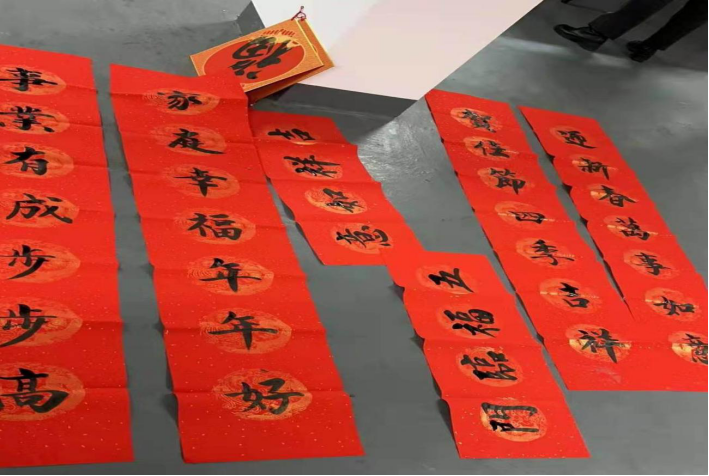 福
事業有成步步高
家庭幸福年年好
吉祥如意
五福臨門
賀佳節四季吉祥
迎新春萬事如意